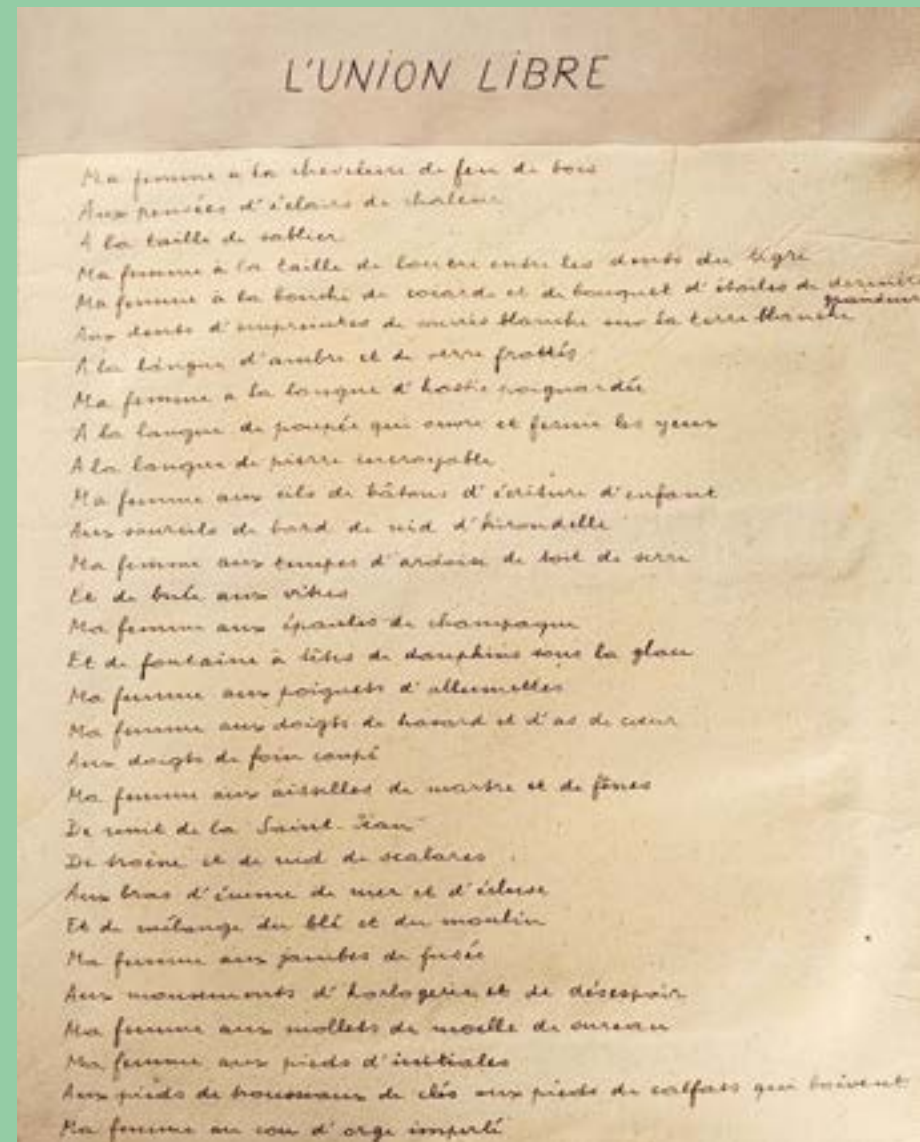 L'UNION LIBRE
Ma femme à la chevelure de feu de bois
Aux pensées d'éclairs de chaleur
A la taille de sablier
Ma femme à la taille de loutre entre les dents du tigre
Ma femme à la bouche de cocarde et de bouquet d'étoiles de dernière
grandeur
Aux dents d'empreintes de souris blanche sur la terre blanche
A la langue d'ambre et de verre frottés
Ma femme à la langue d'hostie poignardée
A la langue de poupée qui ouvre et ferme les yeux
A la langue de pierre incroyable
Ma femme aux cils de bâtons d'écriture d'enfant
Aux sourcils de bord de nid d'hirondelle
Ma femme aux tempes d'ardoise de toit de serre
Et de buée aux vitres
Ma femme aux épaules de champagne
Et de fontaine à têtes de dauphins sous la glace
Ma femme aux poignets d'allumettes
Ma femme aux doigts de hasard et d'as de cœur
Aux doigts de foin coupé
Ma femme aux aisselles de martre et de fênes
De nuit de la Saint-Jean
De troène et de nid de scalares
Aux bras d'écume de mer et d'écluse
Et de mélange du blé et du moulin
Ma femme aux jambes de fusée
Aux mouvements d'horlogerie et de désespoir
Ma femme aux mollets de moelle de sureau
Ma femme aux pieds d'initiales
Aux pieds de trousseaux de clés aux pieds de calfats qui boivent
Ma femme au cou d'orge imperlé